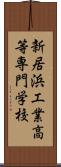 新居浜工業高
等専門学校